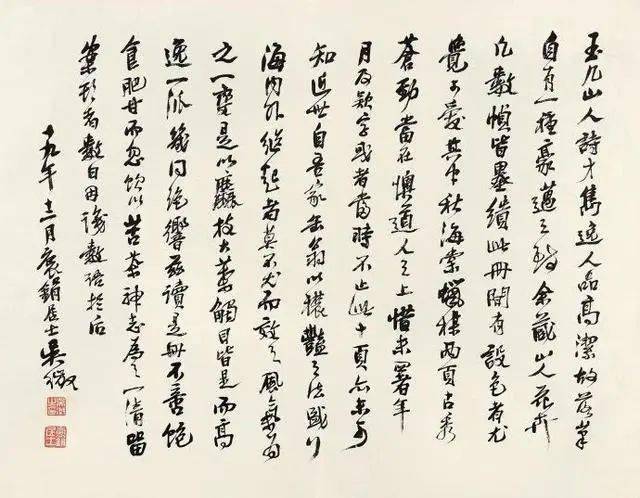 玉几山人詩才雋逸人品高潔故落筆
自有一種豪邁之態余藏山人花卉
凡數幀皆墨繢此冊間有設色者尤
覺可愛其中秋海棠蠟梅兩頁古秀
蒼勁當在懊道人之上惜未署年
月及款字或者當時不止此十頁亦未可
知近世自吾家缶翁以穠豔之法盛行
海內外繼起者莫不尤而效之風氣為
之一變是以麤枝大葉觸目皆是而高
逸一派幾同絕響茲讀是冊不啻飽
食肥甘而忽飲以苦茶神志為之一清留
案頭者數日因識數語於后
十九年十二月袌鋗居士吳徵